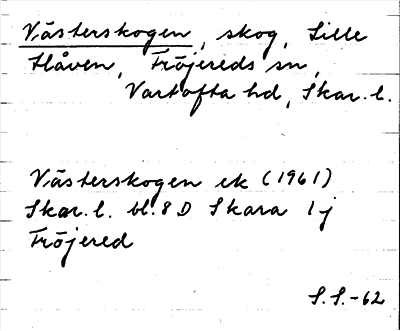 Västerskogen, skog, Lille
Håven, Fröjereds sn,
Vartofta hd, Skar. l.
Västerskogen ek (1961)
Skar. l. bl. 8 D Skara 1j
Fröjered
S.S.-62